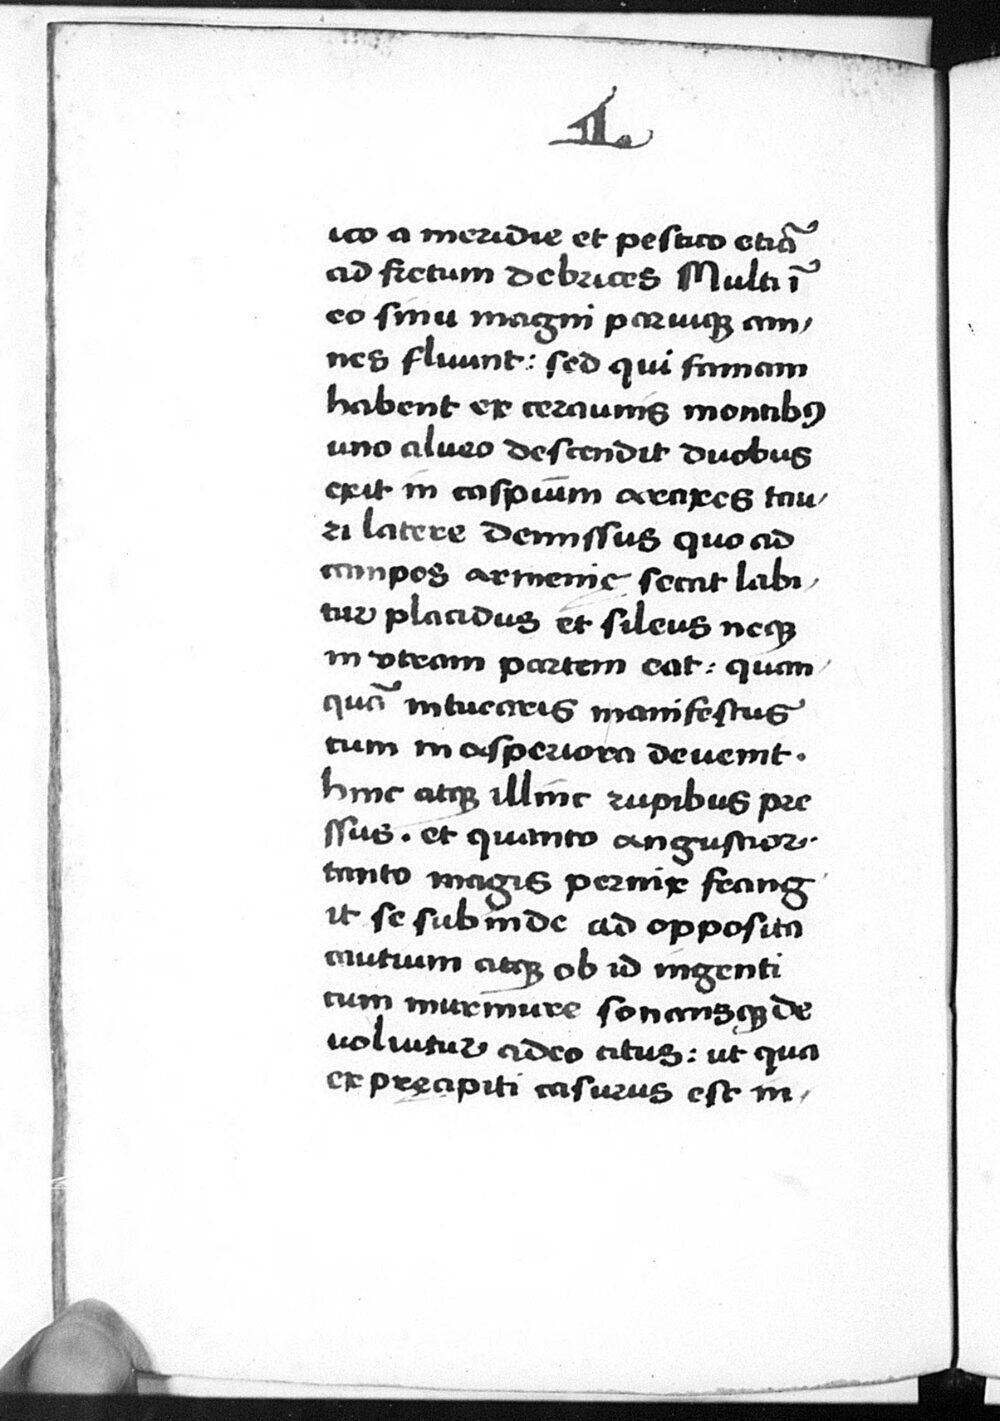 ico a meridie et pestico etiã
ad fretum debrices Multi ĩ
eo sinu magni paruiqꝫ am,
nes fluunt: sed qui famam
habent ex ceraunis montibꝰ
uno alueo descendit duobus
exit in caspium araxes tau,
ri latere demissus quo ad
campos armenie secat labi,
tur placidus et sileus neqꝫ
in vtram partem eat: quan,
quã intuearis manifestus
cum in asperiora deuenit.
hinc atqꝫ illinc rupibus pre
ssus. et quanto angustior.
tanto magis pernix frang
it se subinde ad opposita
cautium atqꝫ ob id ingenti
cum murmure sonansqꝫ de
uoluitur adeo citus: ut qua
ex pręcipiti casurus est in,